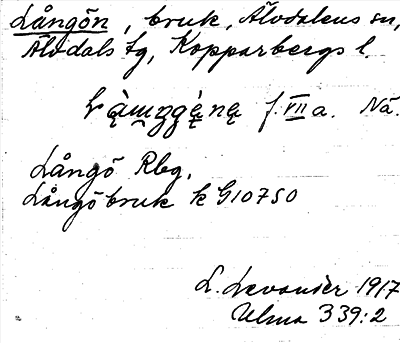 Långön, bruk, Älvdalens sn,
Älvdals tg, Kopparbergs l.
f. VII a. Nä.
Långö Rbg.
Långöbruk k G10750
L. Levander 1917
Ulma 339:2